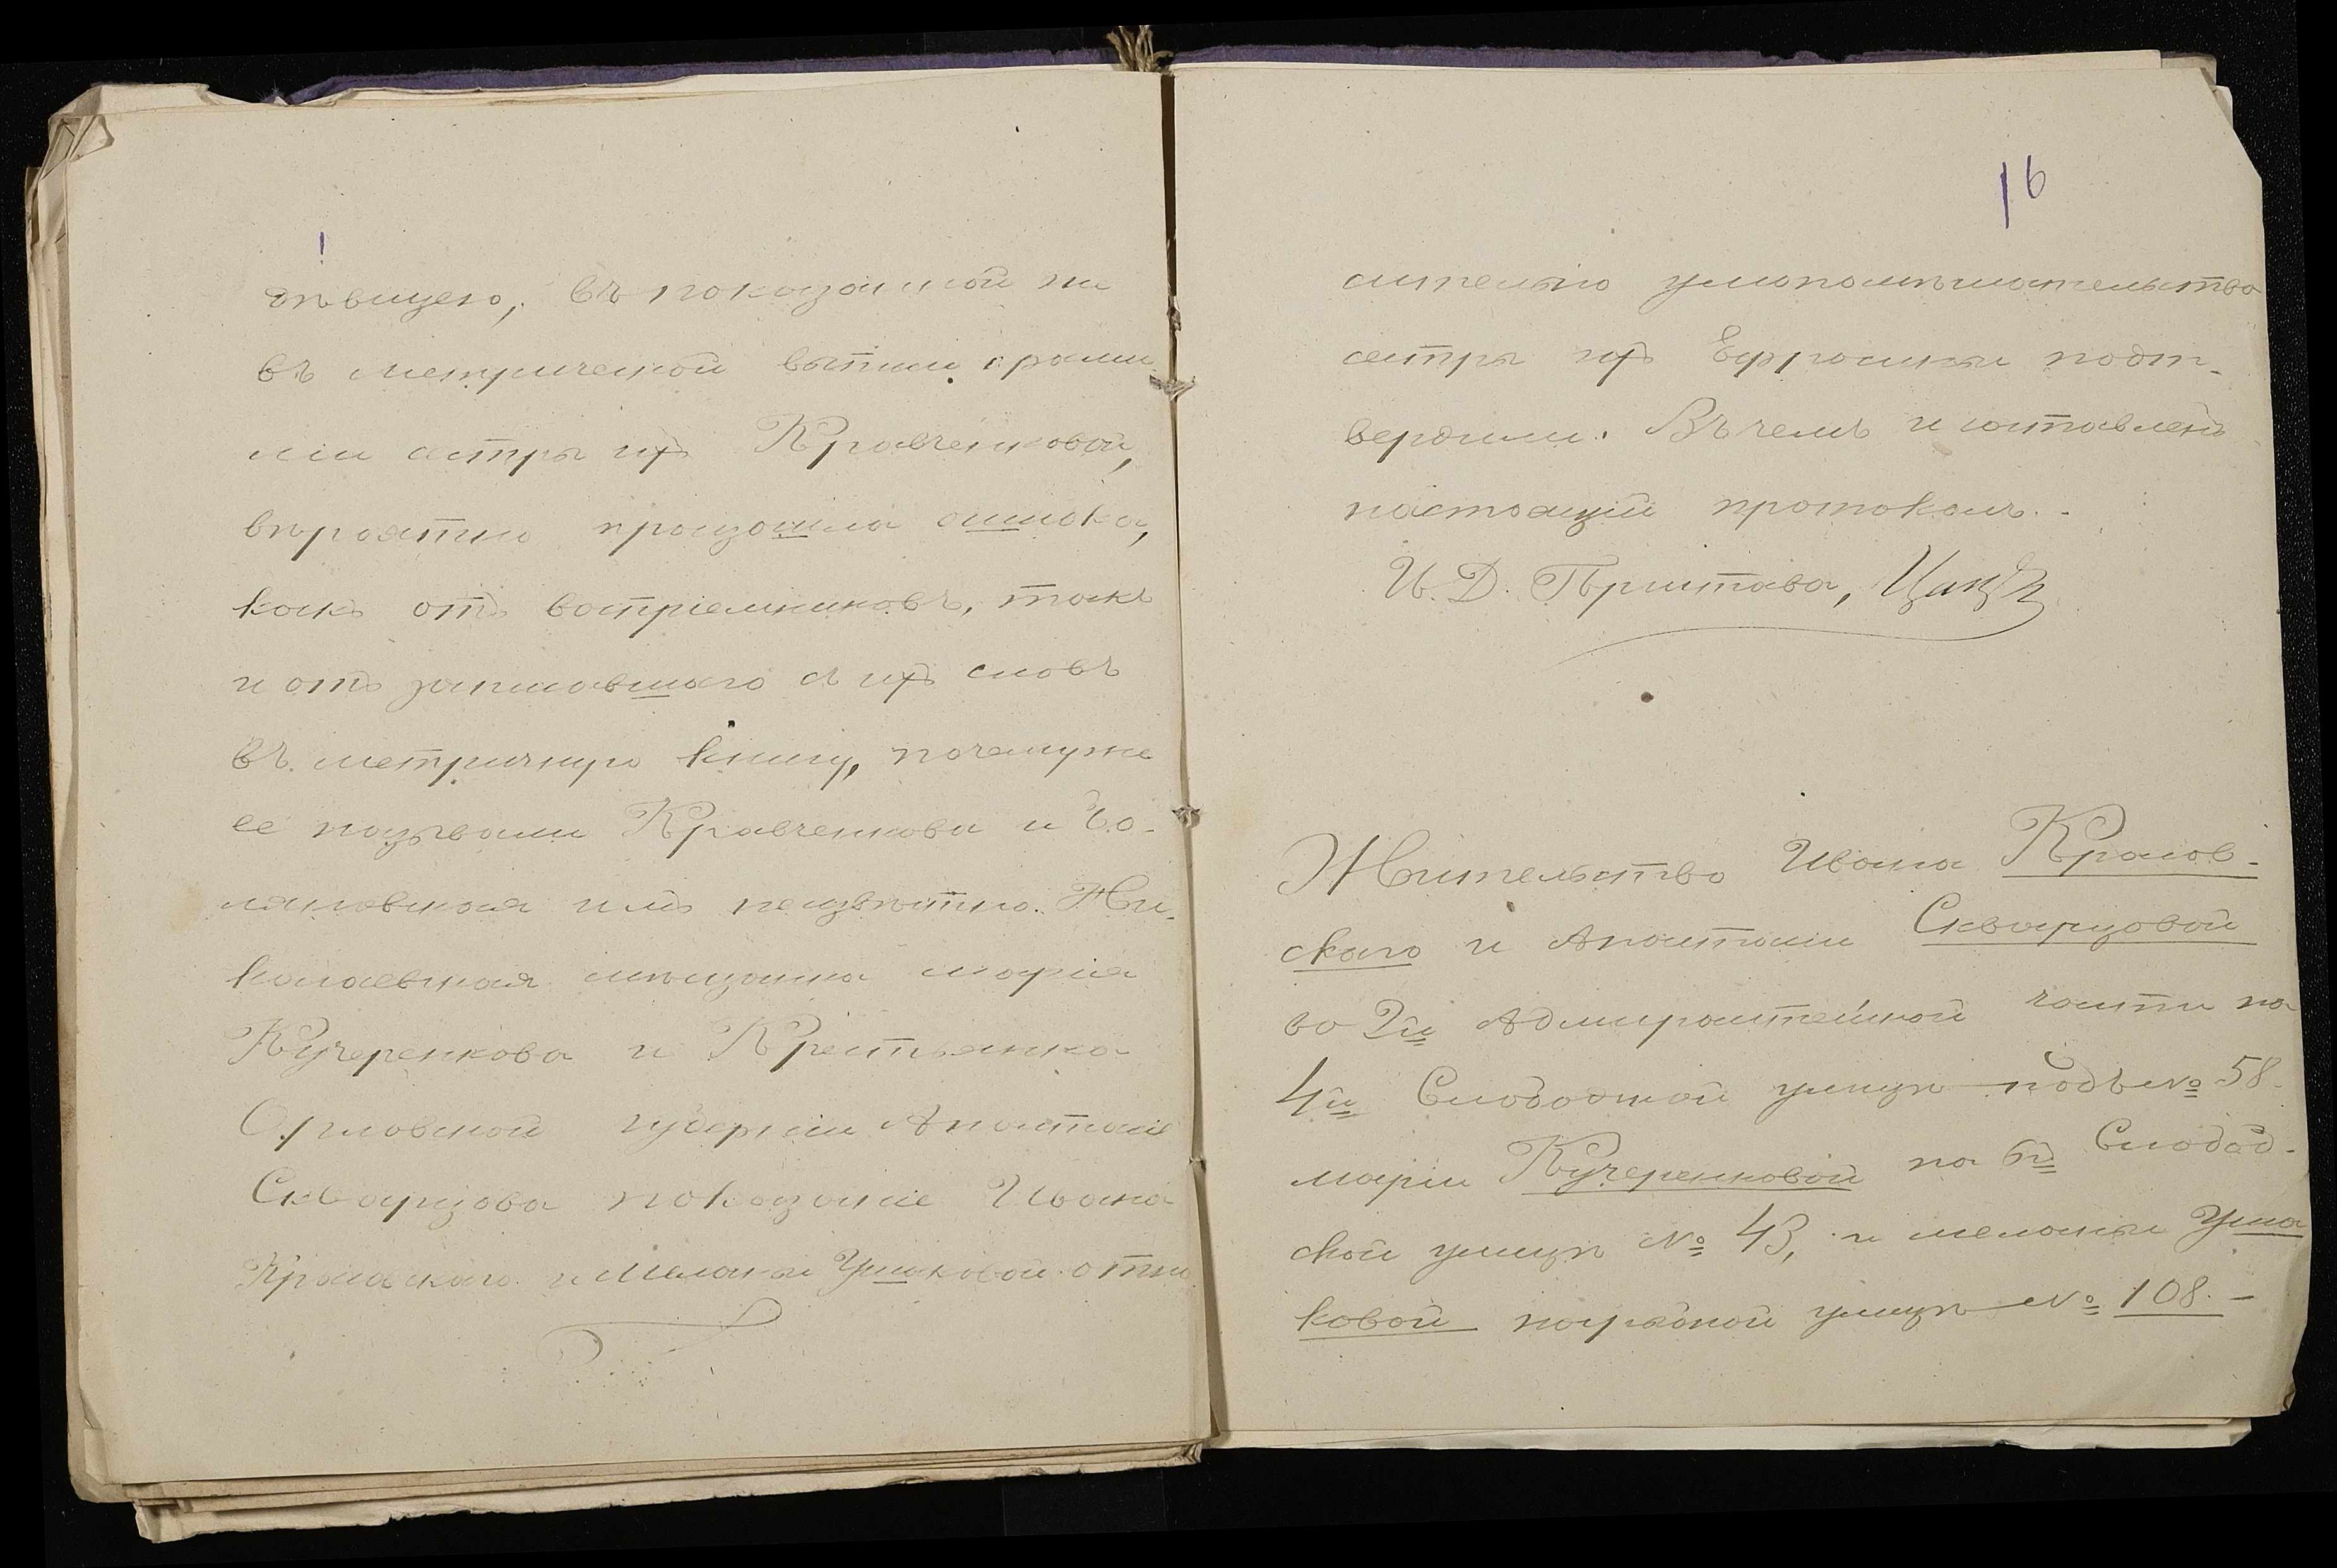 дѣвицею, въ показанной же
въ метрической выписи фами
ліи сестры ихъ Кравченковой,
вѣроятно произошла ошибка,
какъ отъ воспріемниковъ, такъ
и отъ записавшаго съ ихъ словъ
въ метричную книгу, почему же
ее назвали Кравченкова и
имъ неизвѣстно. Ни-
колаевская мѣщанка Марія
Кучеренкова и Крестьянка
Орловской губерніи Анастасія
Скварцова показаніе Ивана
и Меланіи Ушаковой отно
16
сительно умопомѣшательства
сестры ихъ Ефросиніи подт-
вердили. Въ чемъ и составленъ
настоящій протоколъ.
И. Д. Пристава,
Жительство Ивана
скаго и Анастасіи Скварцовой
во 2й Адмиралтейской части на
4й Слободской улицѣ подъ № 58.
Маріи Кучеренковой на 6й Слобод-
ской улицѣ № 43, и Меланіи Уша
ковой улицѣ № 108. –